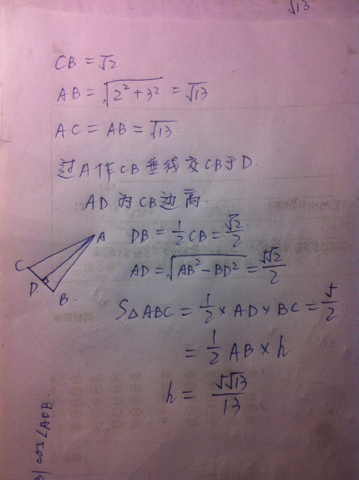 √13
CB = √2
AB = √(2² + 3²) = √13
AC = AB = √13
过A作CB垂线交CB于D.
AD为CB边高.
A
C
D
B
DB = 1/2 CB = √2/2
AD = √(AB² - BD²) = 5√2/2
S△ABC = 1/2 × AD × BC = 5/2
= 1/2 AB × h
h = 5√13/13
cos∠AOB